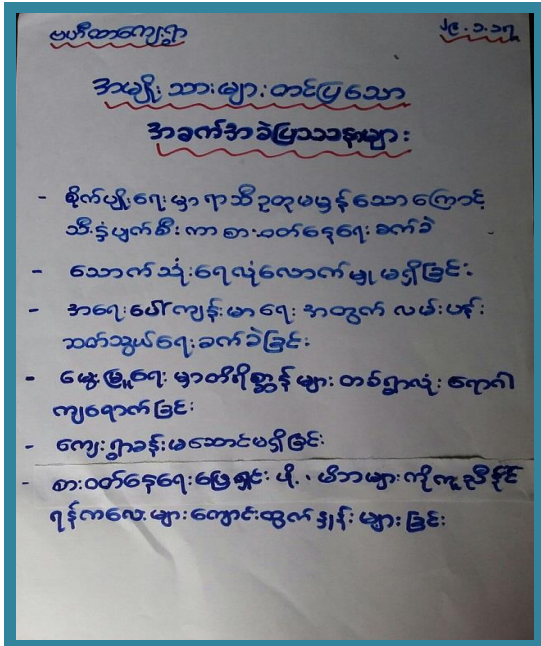 ဗဟီထာကျေးရွာ
၂၉.၁.၁၇
အမျိုးသားများတင်ပြသော
အခက်အခဲပြဿနာများ
- စိုက်ပျိုးရေးမှာ ရာသီဥတုမမှန်သောကြောင့်
သီးနှံပျက်စီးကာ စားဝတ်နေရေးခက်ခဲ
- သောက်သုံးရေလုံလောက်မှုမရှိခြင်း
- အရေးပေါ်ကျန်းမာရေးအတွက် လမ်းပန်း
ဆတ်သွယ်ရေးခက်ခဲခြင်း
- မွေးမြူရေးမှာတိရိစ္ဆာန်များ တစ်ရွာလုံး ရောဂါ
ကျရောက်ခြင်း
- ကျေးရွာခန်းမဆောင်မရှိခြင်း
- စားဝတ်နေရေးဖြေရှင်းဖို့၊ မိဘများကိုကူညီနိုင်
ရန်ကလေးများကျောင်းထွက်နှုန်းများခြင်း